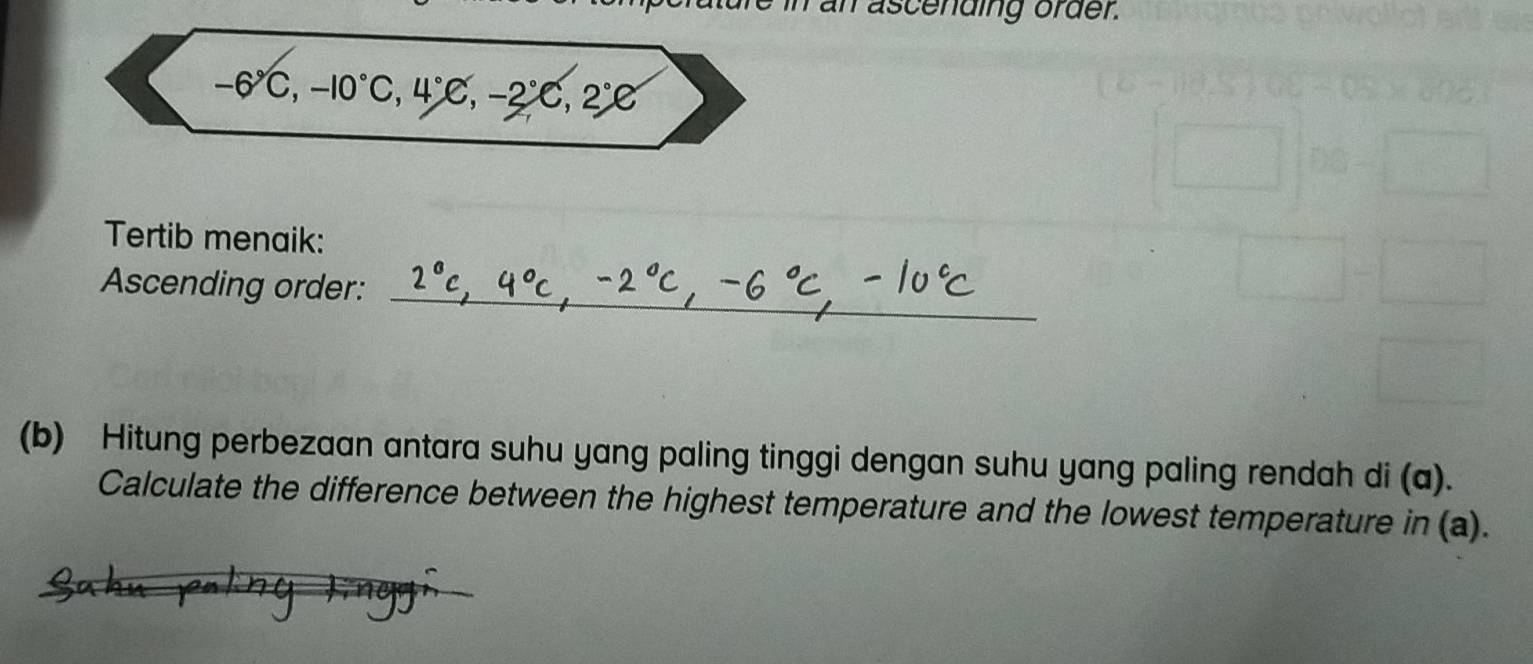 in an ascending order.
-6°C, -10°C, 4°C, -2°C, 2°C
Tertib menaik:
Ascending order: 2°C, 4°C, -2°C, -6°C, -10°C
(b) Hitung perbezaan antara suhu yang paling tinggi dengan suhu yang paling rendah di (a).
Calculate the difference between the highest temperature and the lowest temperature in (a).
Suhu paling tinggi